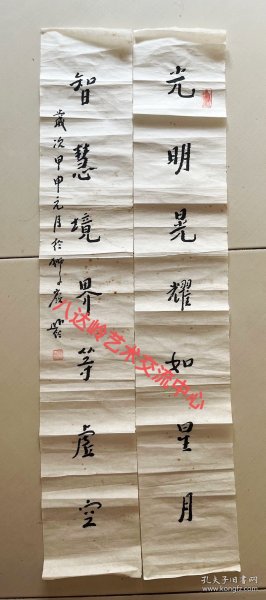 光明晃耀如星月
智慧境界等虚空
歲次甲申元月於
八达岭艺术交流中心
孔夫子旧书网